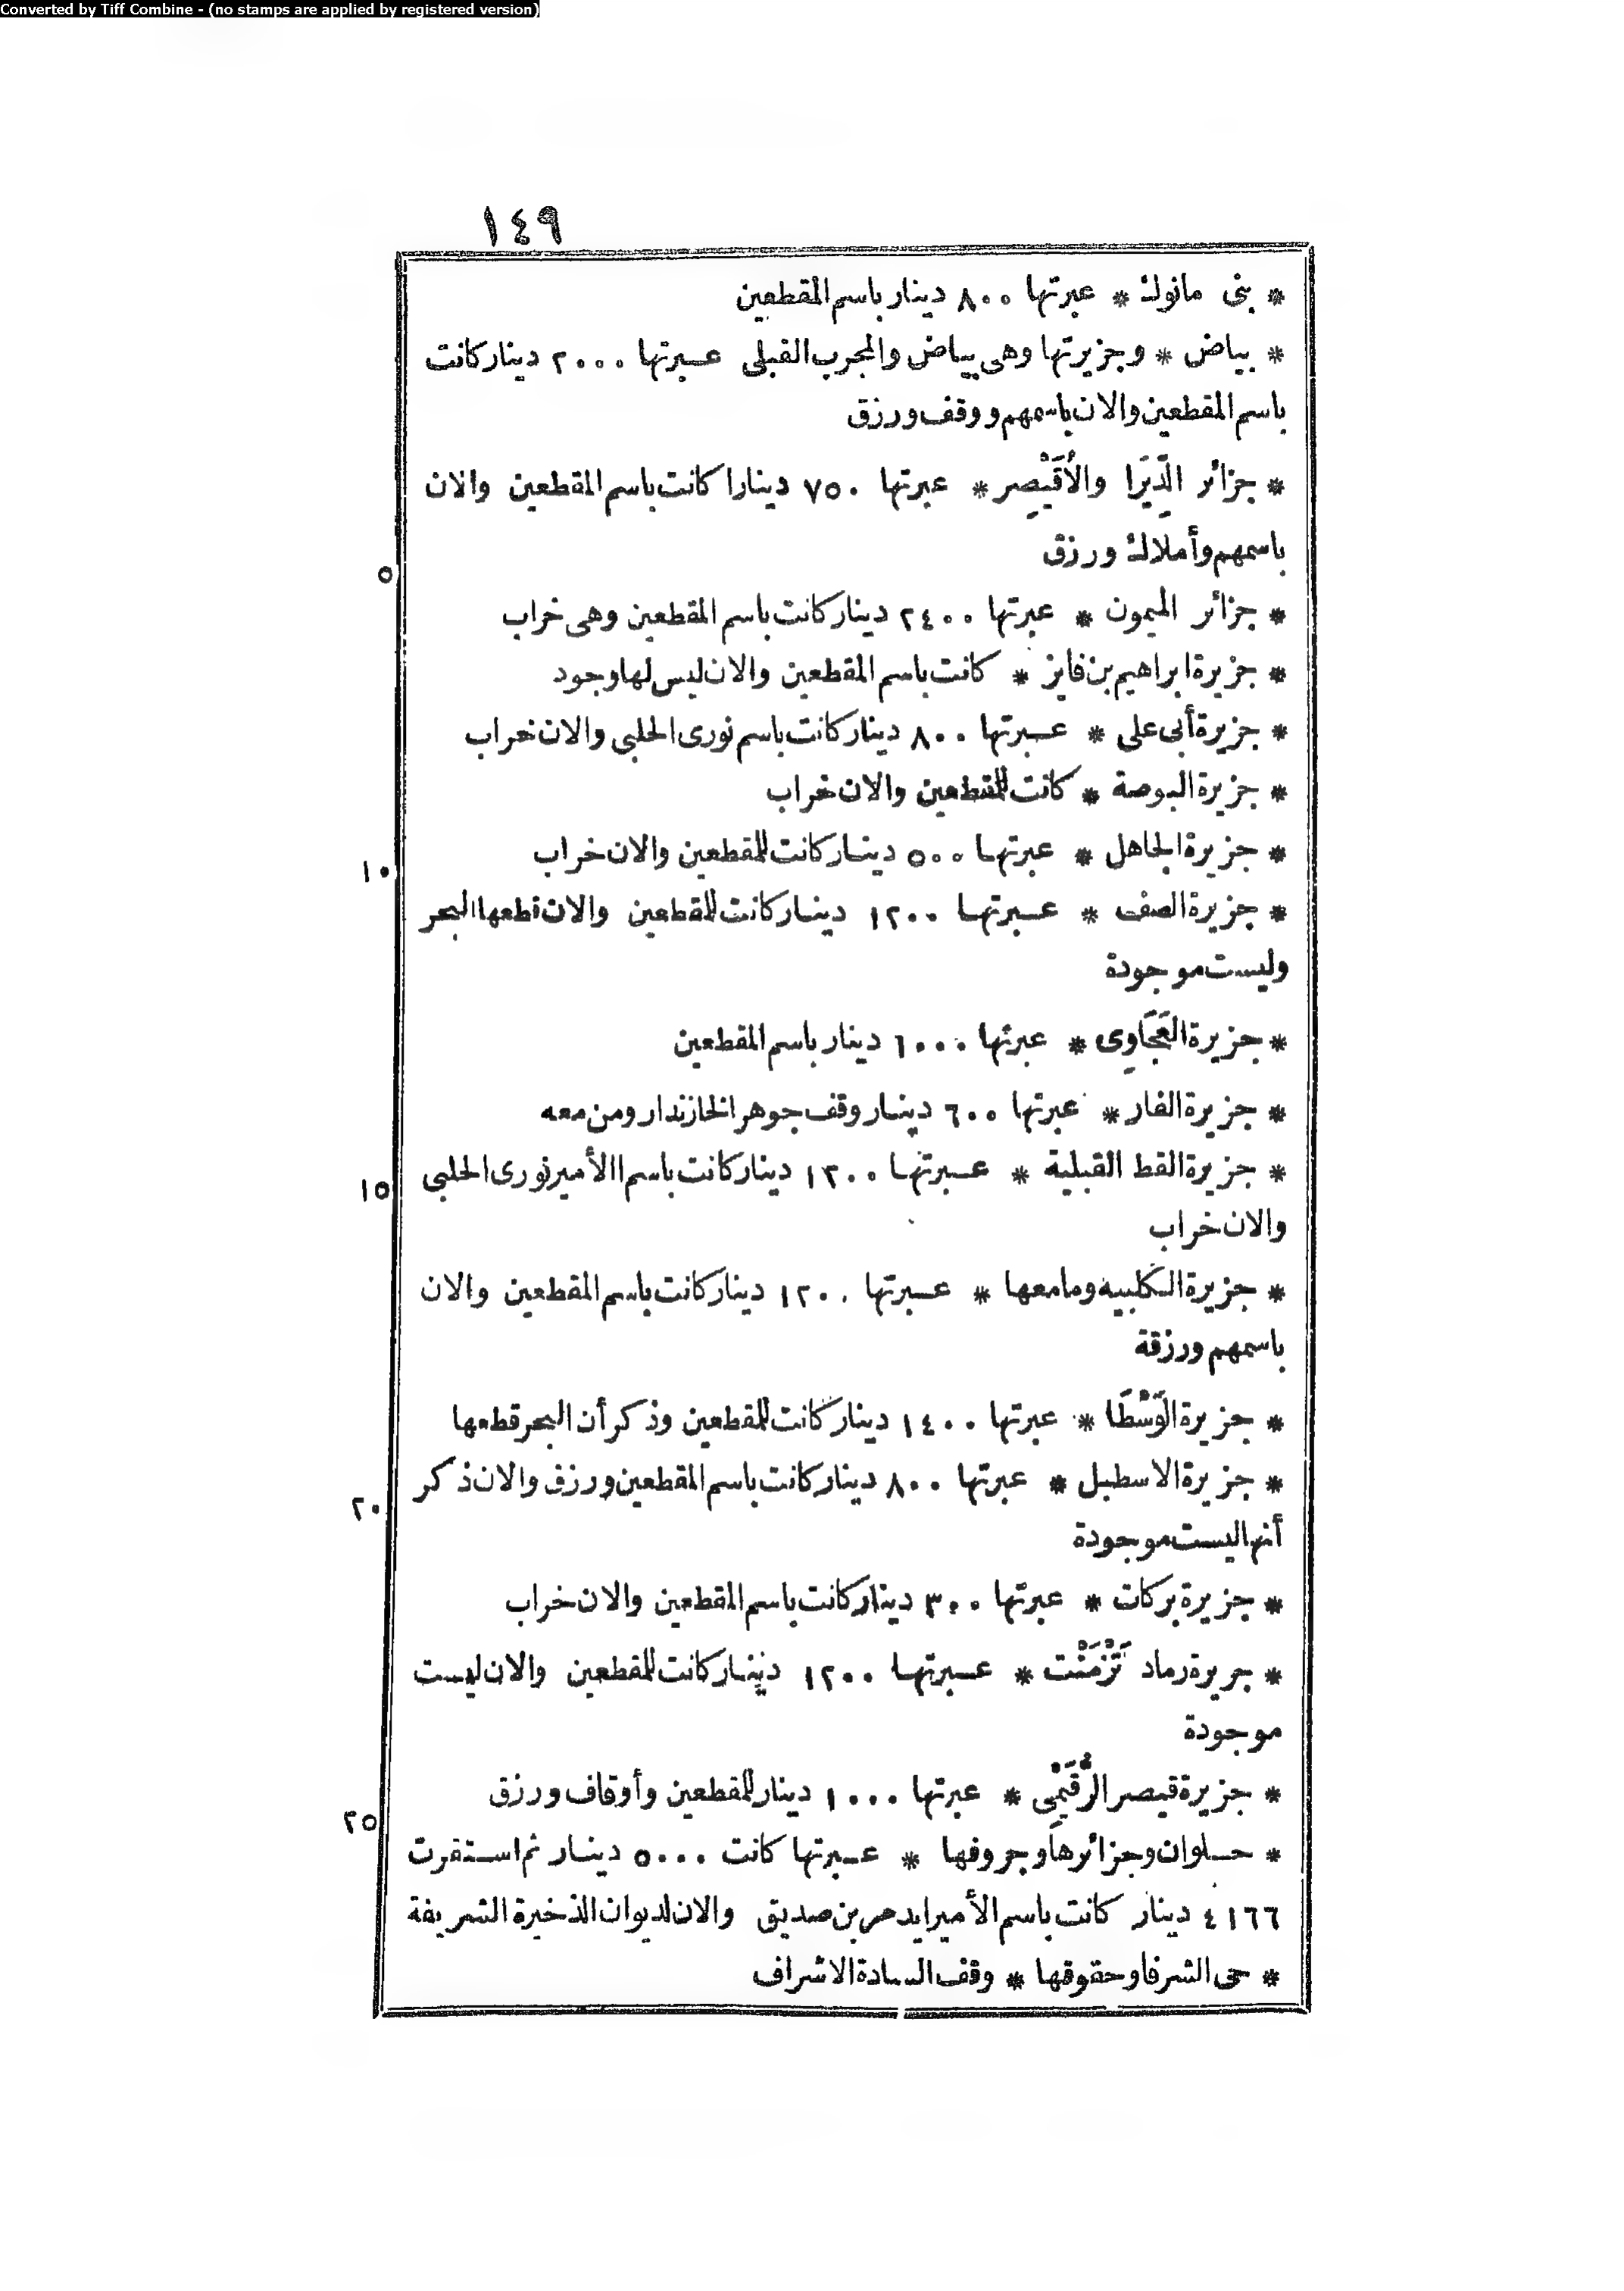 Converted by Tiff Combine - (no stamps are applied by registered version)
١٤٩
* بنى مانوك * عبرتها ٨٠٠ دينار باسم المقطعين
* بياض * وجزيرتها وهى بياض والمجرب القبلى عبرتها ٢٠٠٠ دينار كانت
باسم المقطعين والان باسمهم ووقف ورزق
* جزائر الدِّيَرَا والأُقَيْصِر * عبرتها ٧٥٠ دينارا كانت باسم المقطعين والان
باسمهم وأملاك ورزق
٥
* جزائر الميمون * عبرتها ٢٤٠٠ دينار كانت باسم المقطعين وهى خراب
* جزيرة ابراهيم بن فايز * كانت باسم المقطعين والان ليس لها وجود
* جزيرة أبى على * عبرتها ٨٠٠ دينار كانت باسم نورى الحلبى والان خراب
* جزيرة البوصة * كانت للمقطعين والان خراب
* جزيرة الجاهل * عبرتها ٥٠٠ دينار كانت للمقطعين والان خراب
١٠
* جزيرة الصف * عبرتها ١٢٠٠ دينار كانت للمقطعين والان قطعها البحر
وليست موجودة
* جزيرة العَجَاوِى * عبرتها ١٠٠٠ دينار باسم المقطعين
* جزيرة الفار * عبرتها ٦٠٠ دينار وقف جوهر الخازندار ومن معه
* جزيرة القط القبلية * عبرتها ١٣٠٠ دينار كانت باسم الأمير نورى الحلبى
١٥
والان خراب
* جزيرة الكلبيه ومامعها * عبرتها ١٢٠٠ دينار كانت باسم المقطعين والان
باسمهم ورزقة
* جزيرة الوَسْطَا * عبرتها ١٤٠٠ دينار كانت للمقطعين وذكر أن البحر قطعها
* جزيرة الاسطبل * عبرتها ٨٠٠ دينار كانت باسم المقطعين ورزق والان ذكر
٢٠
أنها ليست موجودة
* جزيرة بركات * عبرتها ٣٠٠ دينار كانت باسم المقطعين والان خراب
* جزيرة رماد تَزْمَنْت * عبرتها ١٢٠٠ دينار كانت للمقطعين والان ليست
موجودة
* جزيرة قيصر الرُّقَيْمِى * عبرتها ١٠٠٠ دينار للمقطعين وأوقاف ورزق
٢٥
* حلوان وجزائرها وجروفها * عبرتها كانت ٥٠٠٠ دينار ثم استقرت
٤١٦٦ دينار كانت باسم الأمير ايدمر بن صديق والان لديوان الذخيرة الشريفة
* حى الشرفا وحقوقها * وقف السادة الاشراف